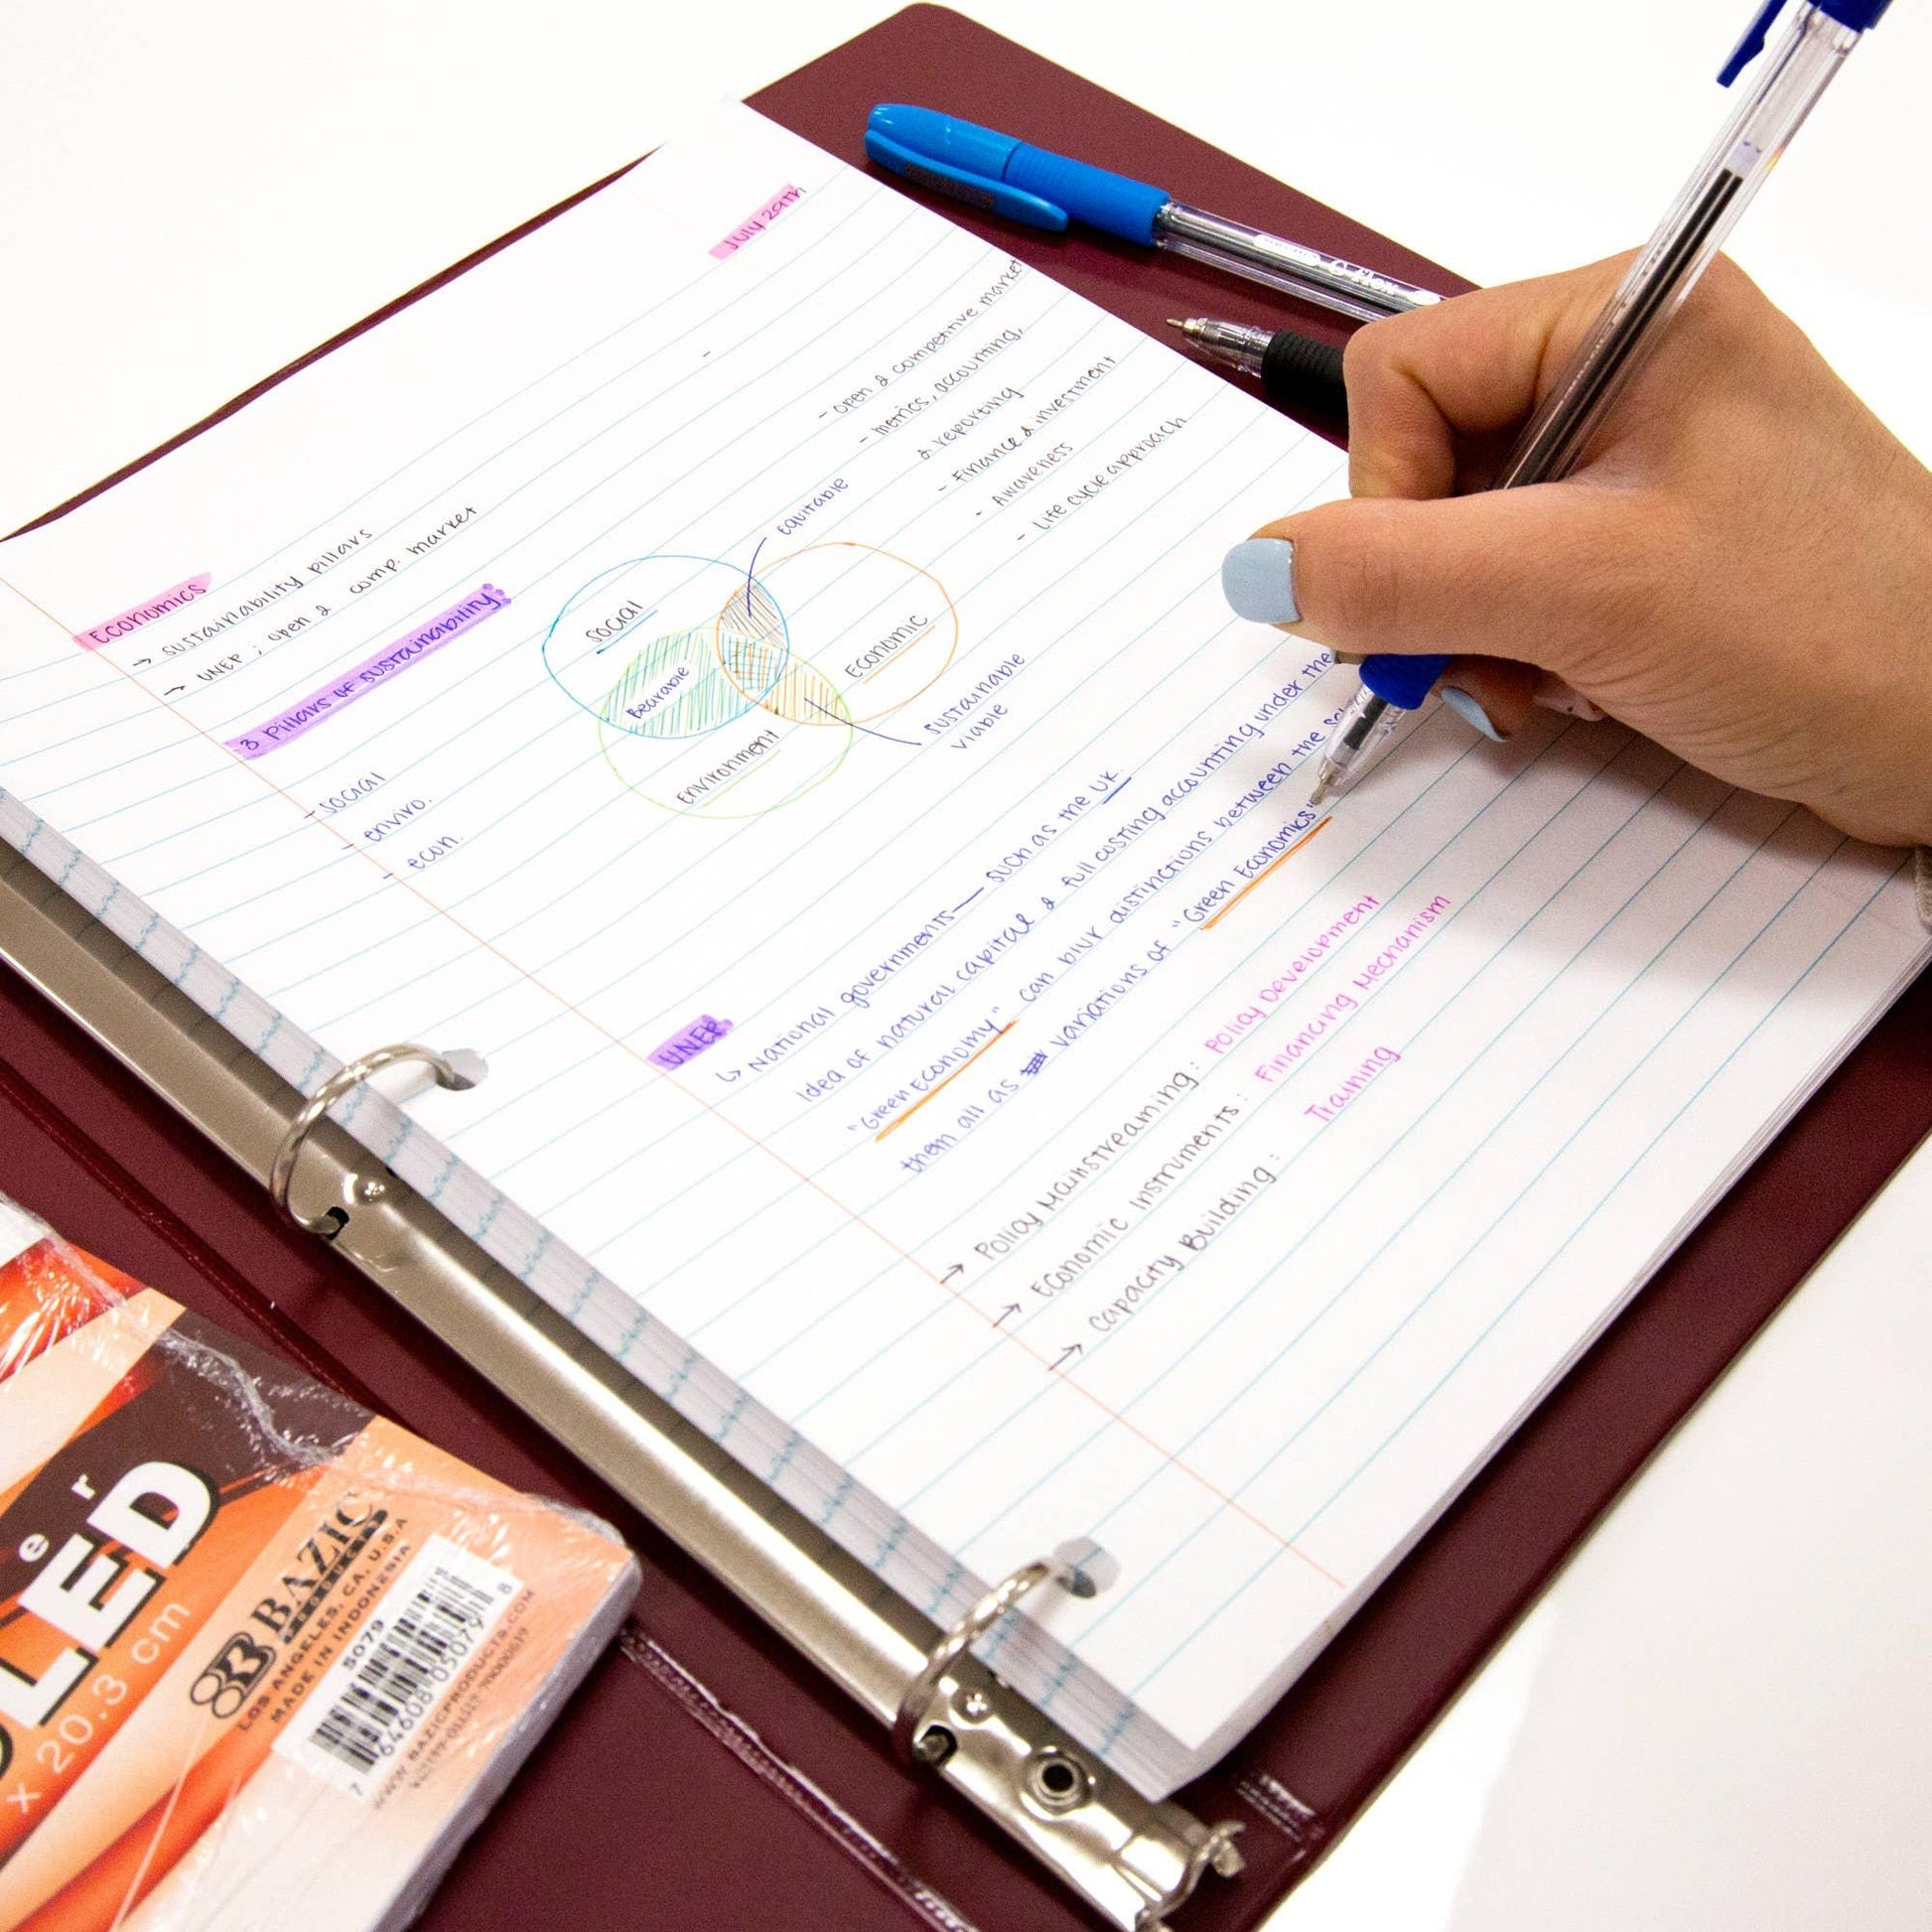 July 29th
Economics
→ sustainability pillars
→ UNEP ; open & comp. market
3 pillars of sustainability:
- social
- enviro.
- econ.
social
Economic
Bearable
Environment
Equitable
sustainable
viable
- open & competitive market
- metrics, accounting,
& reporting
- Finance & investment
- Awareness
- Life cycle approach
UNEP
↳ National governments— such as the UK.
idea of natural capital & full costing accounting under the
"Green Economy" can blur distinctions between the
them all as variations of "Green Economics"
→ Policy Mainstreaming: Policy Development
→ Economic Instruments: Financing Mechanism
→ Capacity Building: Training
er
LED
x 20.3 cm
BAZIC
PRODUCTS
LOS ANGELES, CA, U.S.A
MADE IN INDONESIA
5079
7 64608 05079 8
WWW.BAZICPRODUCTS.COM